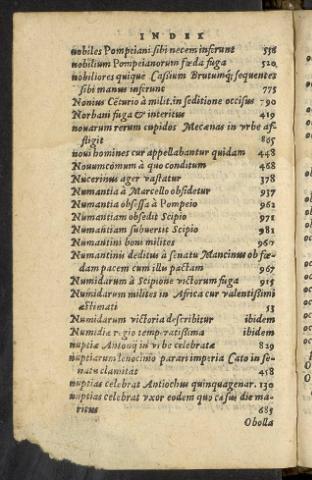 INDEX
nobiles Pompeiani sibi necem inferunt 538
nobilium Pompeianorum fœda fuga 520
nobiliores quique Cassium Brutumq; sequentes
sibi manus inferunt 775
Nonius Cēturio à milit. in seditione occisus 790
Norbani fuga & interitus 419
nouarum rerum cupidos Mecœnas in vrbe af-
fligit 805
noui homines cur appellabantur quidam 448
Nouumcomum à quo conditum 468
Nucerinus ager vastatur 378
Numantia à Marcello obsidetur 937
Numantia obsessa à Pompeio 962
Numantiam obsedit Scipio 971
Numantiam subuersit Scipio 981
Numantini boni milites 960
Numantinis deditus à senatu Mancinus ob fœ-
dam pacem cum illis pactam 967
Numidarum à Scipione victorum fuga 915
Numidarum milites in Africa cur valentissimi
æstimati 53
Numidarum victoria describitur ibidem
Numidiæ regio temperatissima ibidem
nuptiæ Antonij in vrbe celebratæ 829
nuptiarum lenocinio parari imperia Cato in se-
natu clamitas 458
nuptias celebrat Antiochus quinquagenar. 130
nuptias celebrat vxor eodem quo casus die ma-
ritus 685
Obolla